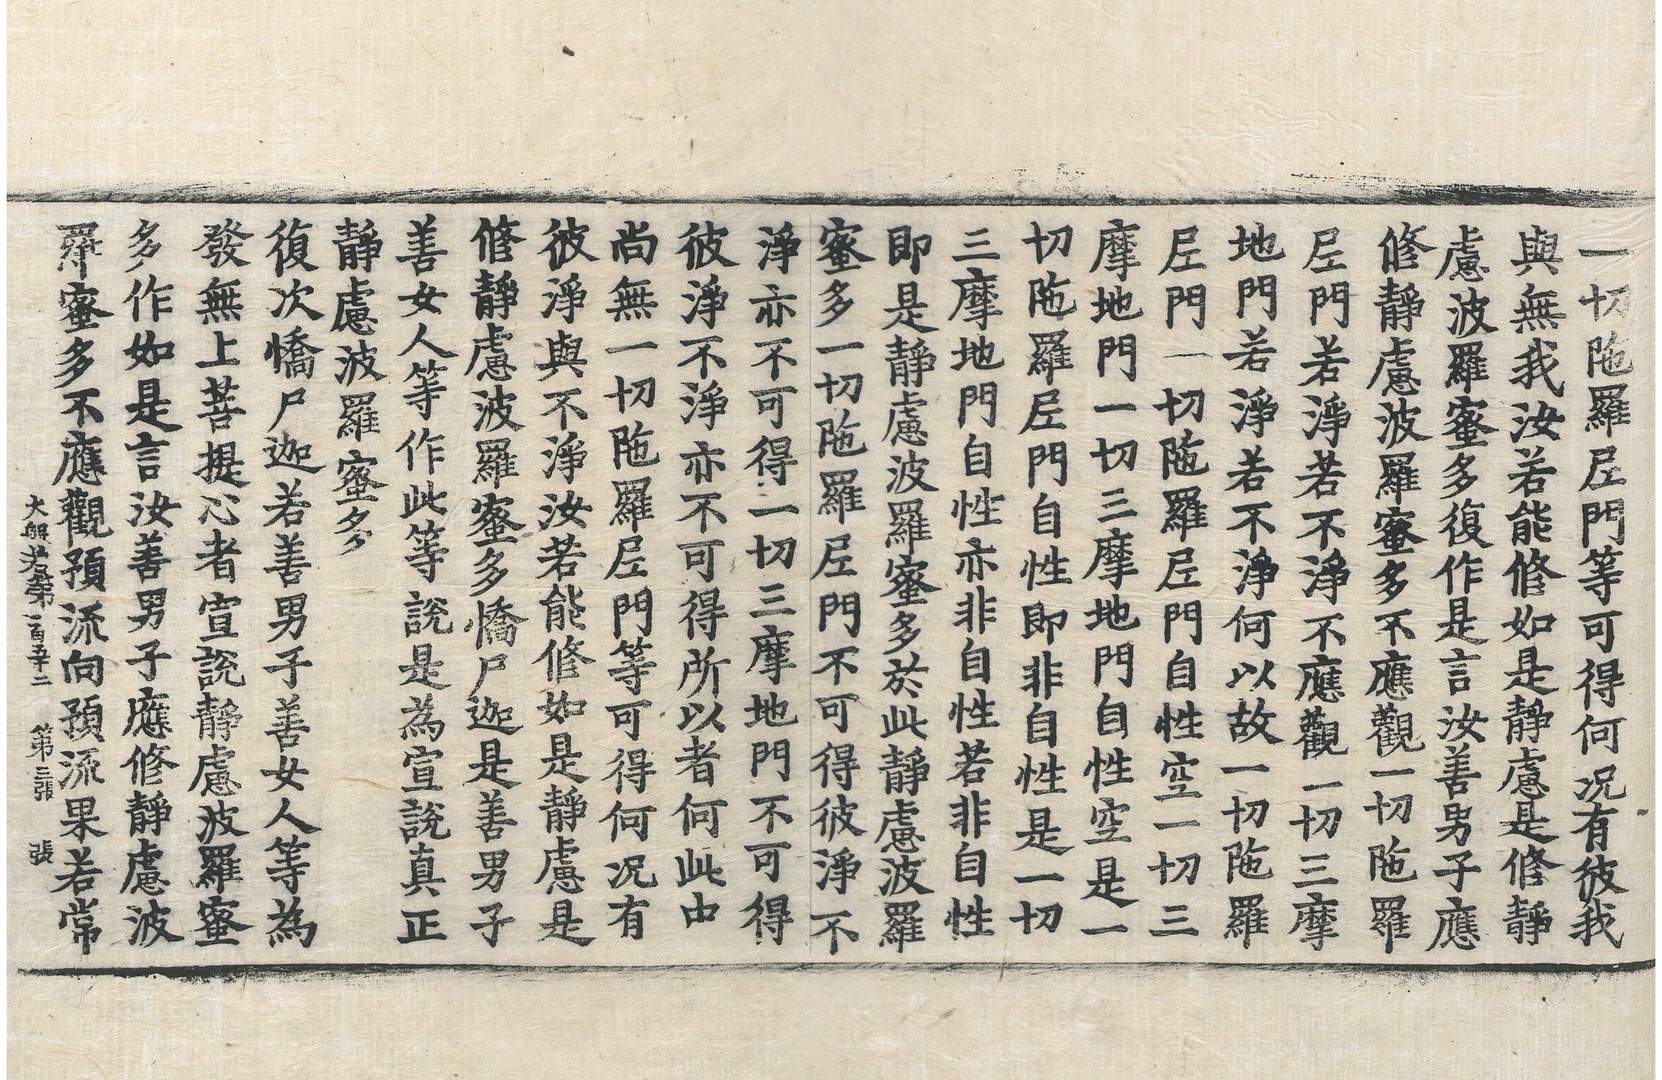 一切陁羅尼門等可得何況有彼我
與無我汝若能修如是靜慮是修靜
慮波羅蜜多復作是言汝善男子應
修靜慮波羅蜜多不應觀一切陁羅
尼門若淨若不淨不應觀一切三摩
地門若淨若不淨何以故一切陁羅
尼門一切陁羅尼門自性空一切三
摩地門一切三摩地門自性空是一
切陁羅尼門自性即非自性是一切
三摩地門自性亦非自性若非自性
即是靜慮波羅蜜多於此靜慮波羅
蜜多一切陁羅尼門不可得彼淨不
淨亦不可得一切三摩地門不可得
彼淨不淨亦不可得所以者何此中
尚無一切陁羅尼門等可得何況有
彼淨與不淨汝若能修如是靜慮是
修靜慮波羅蜜多憍尸迦是善男子
善女人等作此等說是為宣說真正
靜慮波羅蜜多
復次憍尸迦若善男子善女人等為
發無上菩提心者宣說靜慮波羅蜜
多作如是言汝善男子應修靜慮波
羅蜜多不應觀預流向預流果若常
大般若第一百五十二 第三張 張